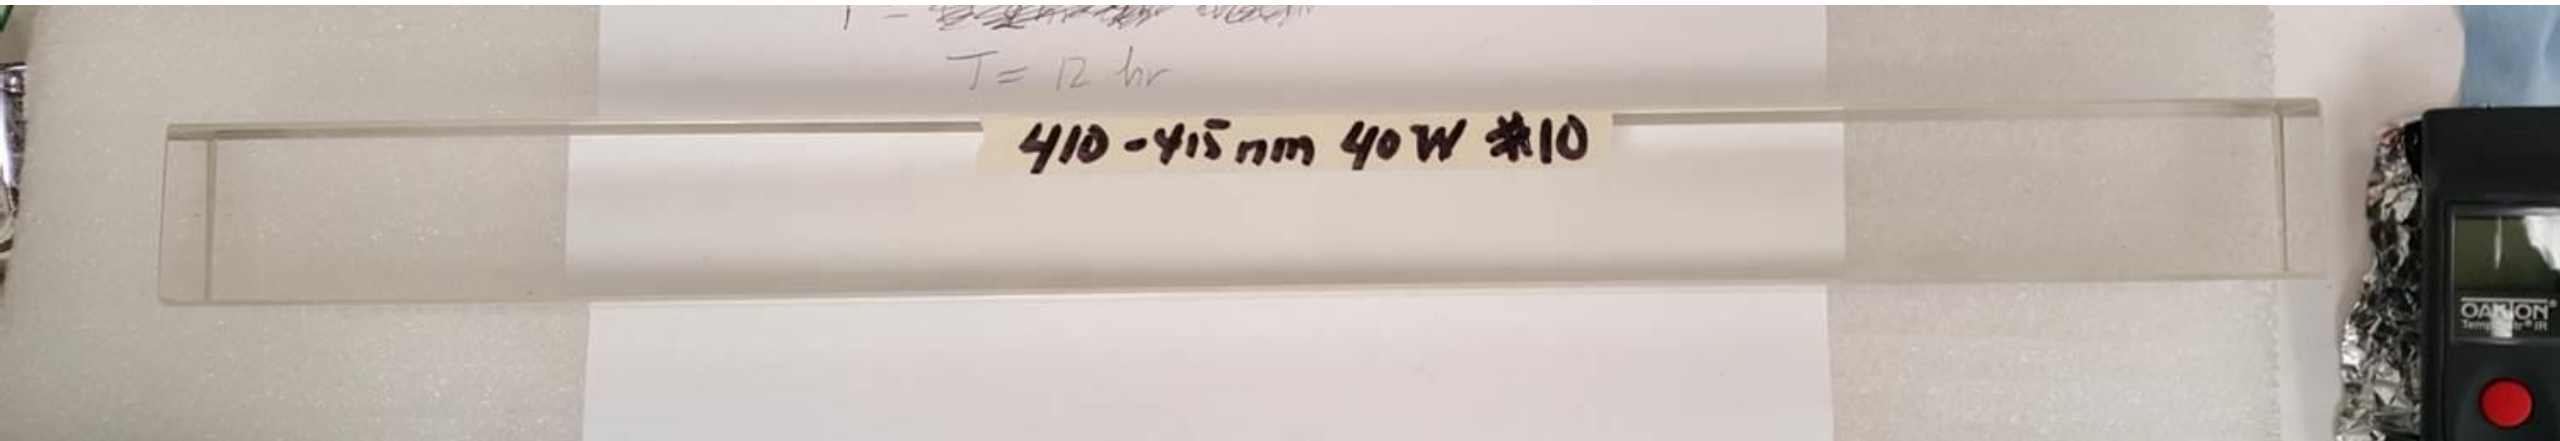 T = 12 hr
410-415nm 40W #10
OAKTON®